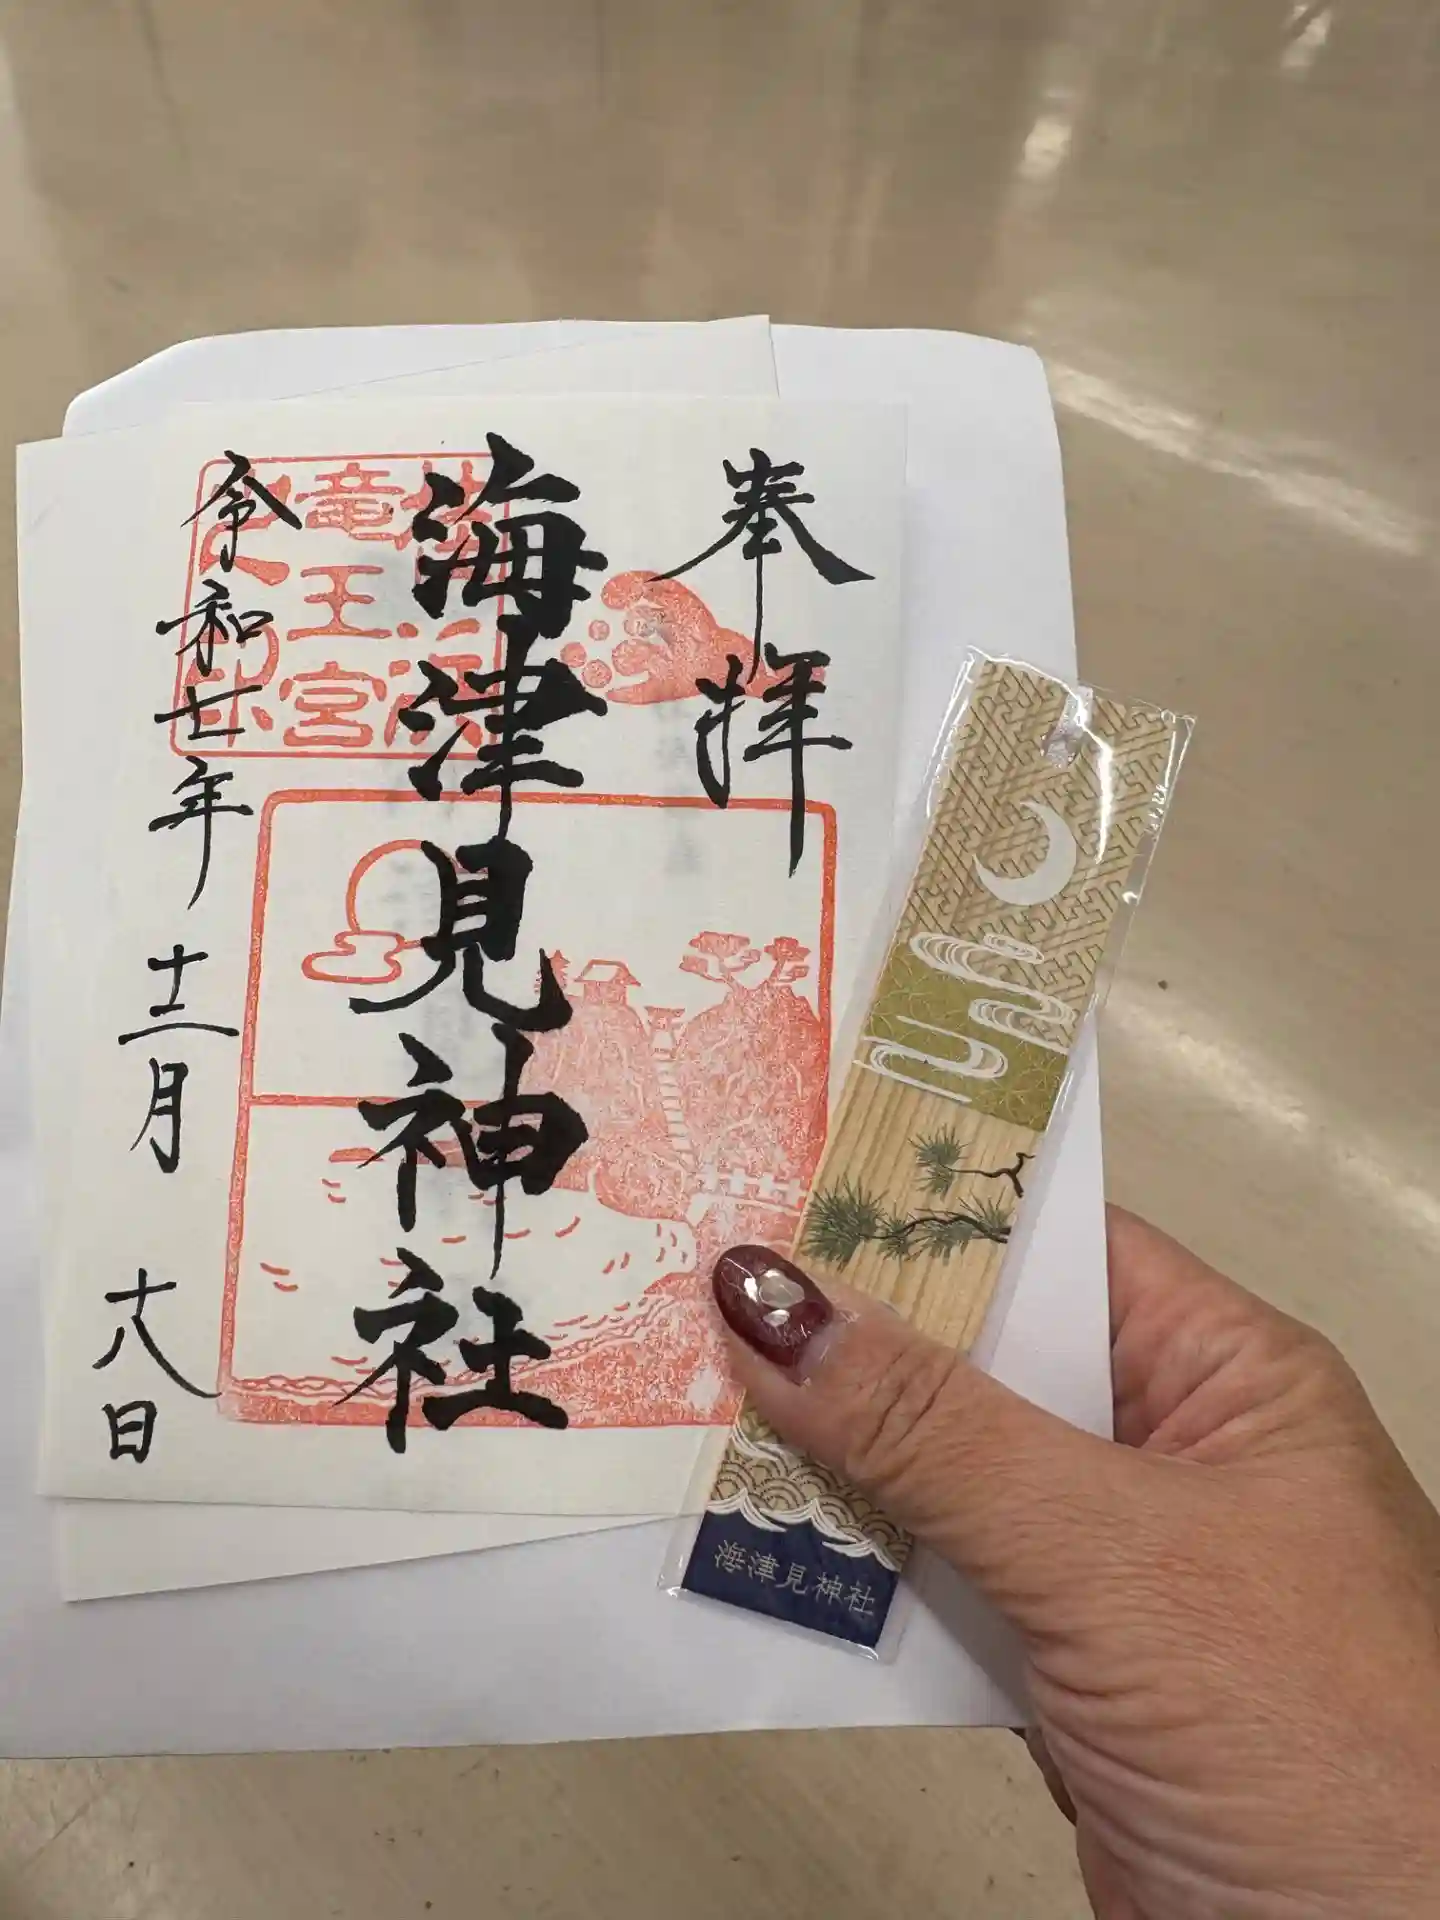 奉拝
海津見神社
竜王宮
之印
令和七年十二月十八日
海津見神社